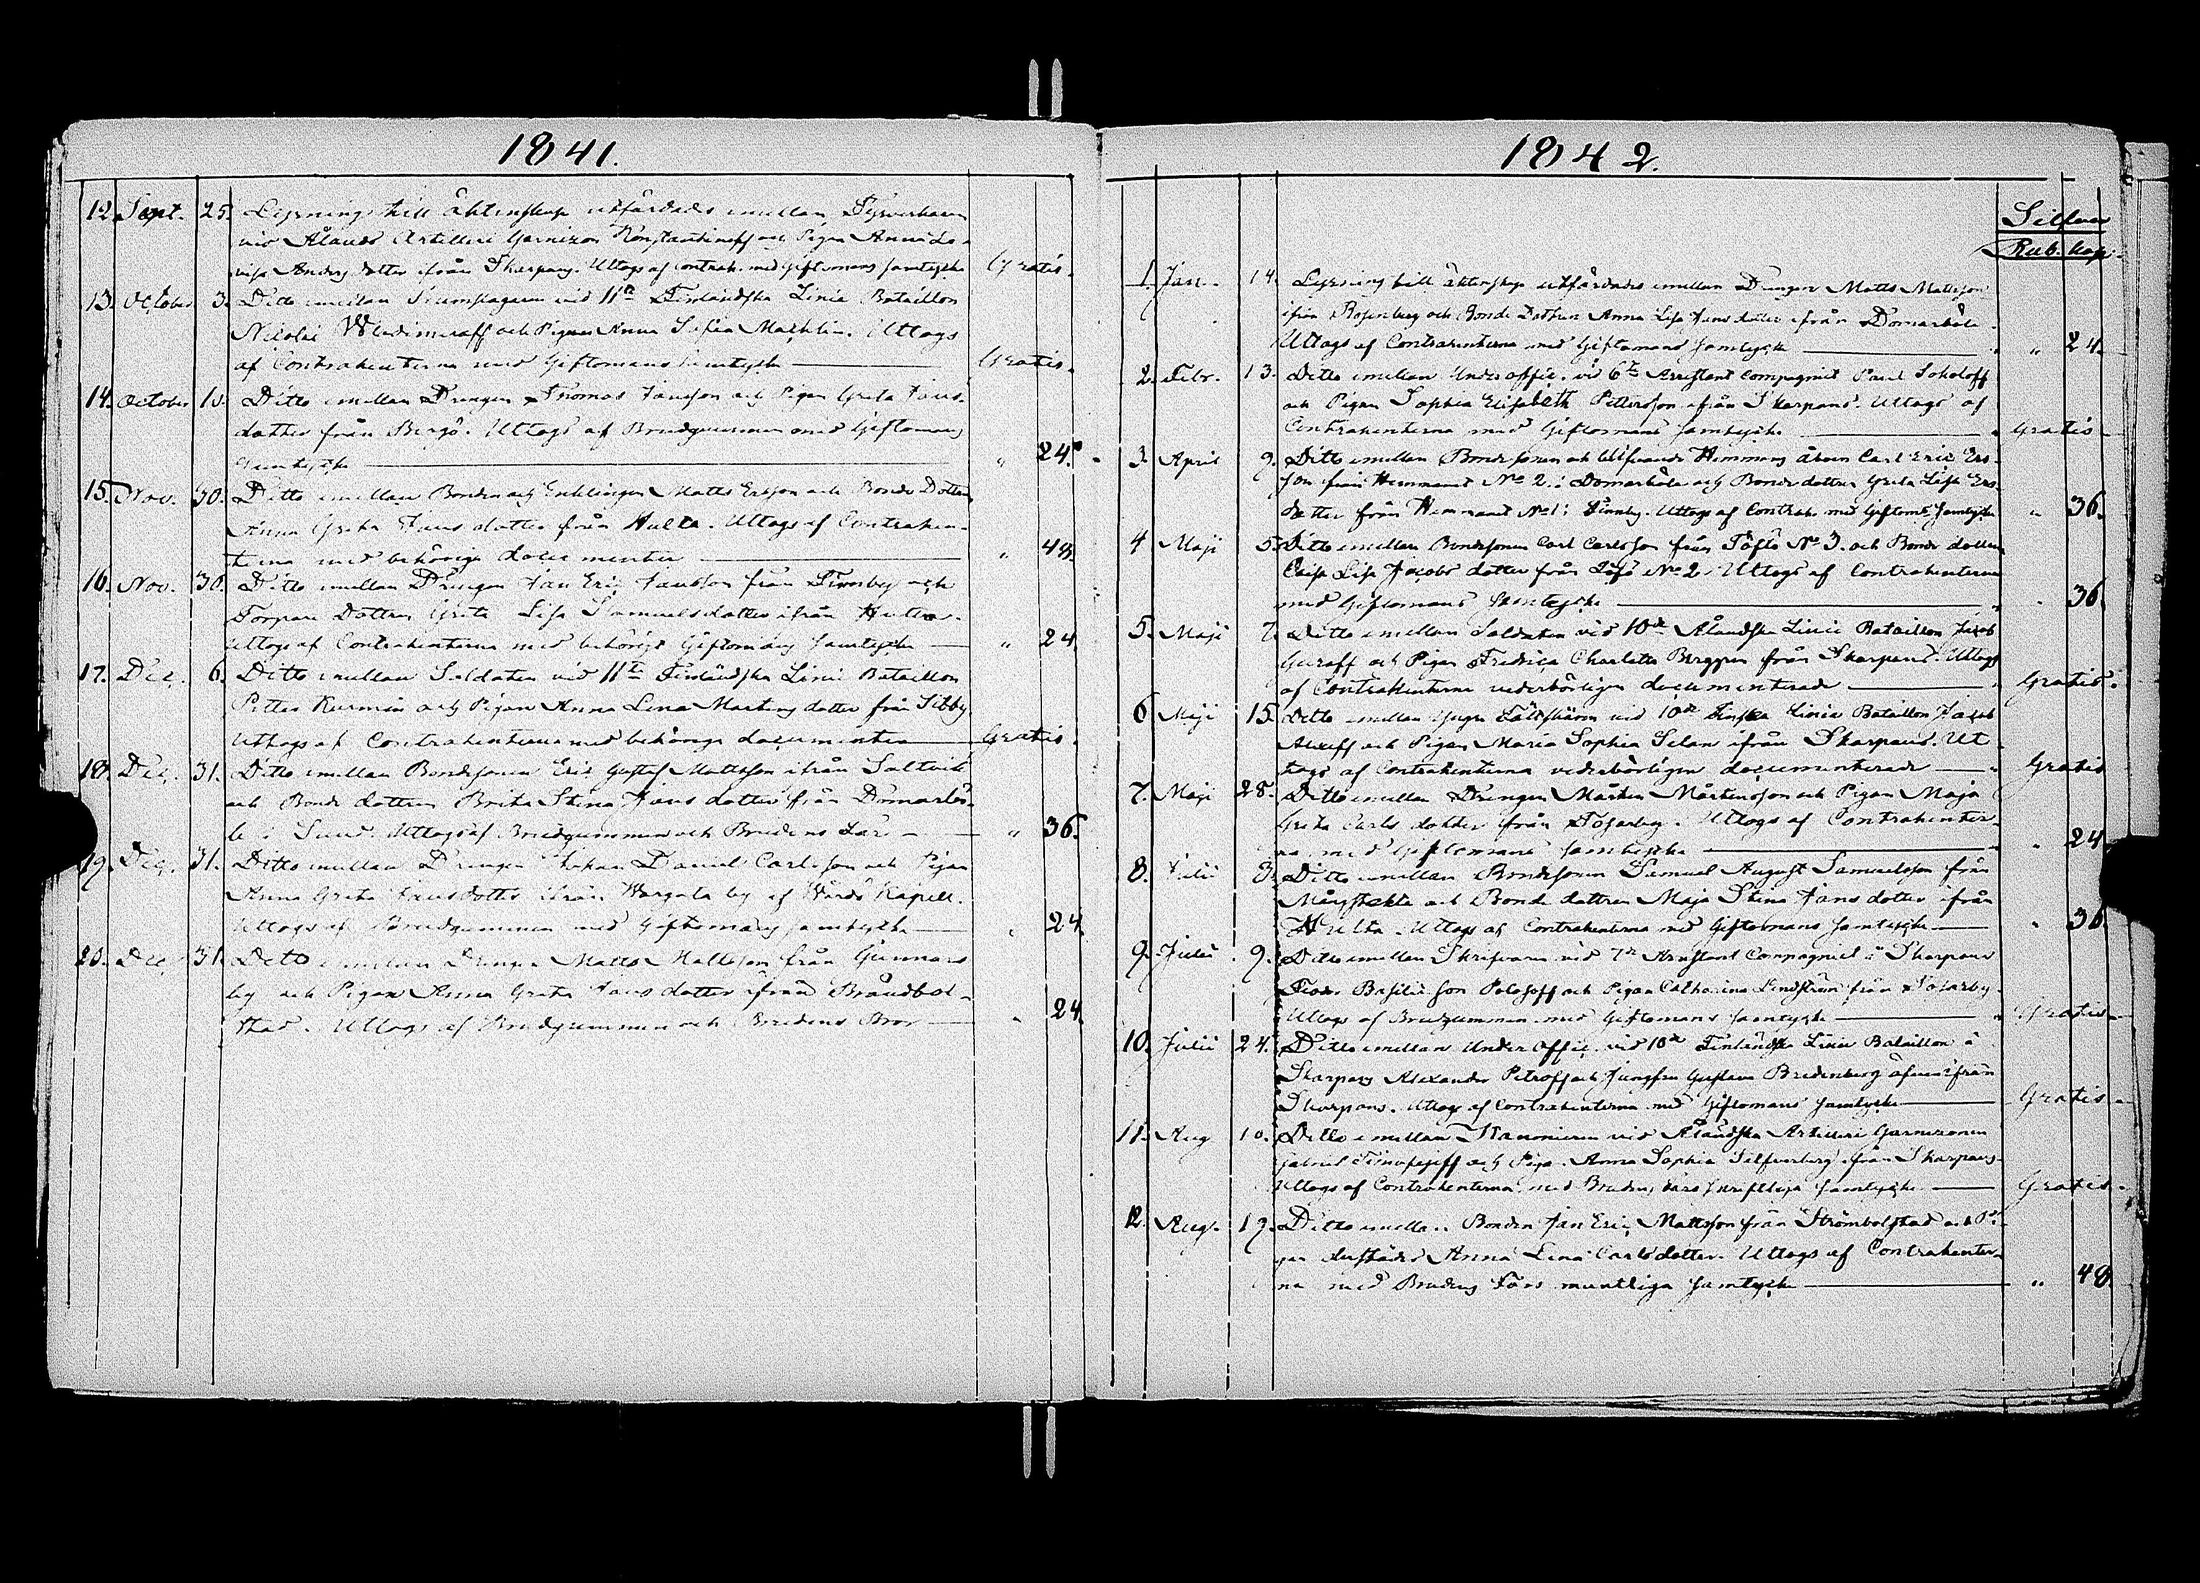 1841.
12. Sept. 25. Lysning till äktenskap utfärdades emellan Fyrverkaren
vid Ålands Artilleri Garnizon Konstantinoff och Pigan Anna Lo-
visa Anders dotter ifrån Skarpans. Uttogs af Contrah. med Giftomans samtycke Gratis.
13. October 3. Ditto emellan vid 11te Finländska Linie Bataillon
Nicolai Wladimeroff och Pigan Anna Sofia Machlin. Uttogs
af Contrahenterna med Giftomans samtycke Gratis.
14. October 10. Ditto emellan Drengen Thomas Jansson och Pigan Greta Jans-
dotter från Bergö. Uttogs af Brudgummen med Giftomans
samtycke " 24.
15. Nov. 30. Ditto emellan Bonden och Enklingen Matts Ersson och Bonde Dottren
Anna Greta Jans dotter från Hulta. Uttogs af Contrahen-
terna med behöriga documenter " 48.
16. Nov. 30. Ditto emellan Drengen Jan Eric Jansson från Finnby och
Torpare Dottren Greta Lisa Samuelsdotter ifrån Hulta.
Uttogs af Contrahenterna med behörigt Giftomans samtycke " 24
17. Dec. 6. Ditto emellan Soldaten vid 11te Finländska Linie Bataillon
Petter Kurmin och Pigan Anna Lena Martens dotter från Sibby.
Uttogs af Contrahenterna med behöriga documenter Gratis.
18. Dec. 31. Ditto emellan Bondesonen Eric Gustaf Mattsson ifrån Saltvik
och Bonde dottren Brita Stina Jans dotter från Domarbö-
le i Sund. Uttogs af Brudgummen och Brudens Far " 36.
19. Dec. 31. Ditto emellan Drengen Johan Daniel Carlsson och Pigan
Anna Greta Jansdotter ifrån Wargata by af Wårdö Kapell.
Uttogs af Brudgummen med Giftomans samtycke " 24.
20. Dec. 31. Ditto emellan Drengen Matts Mattsson från Gunnars
by och Pigan Anna Greta Jans dotter ifrån Brändbol-
stad. Uttogs af Brudgummen och Brudens Bror " 24.
1842.
Silfver
Rub. kop.
1. Jan. 14. Lysning till äktenskap utfärdades emellan Drengen Matts Mattsson
ifrån Rosenberg och Bonde Dottren Anna Lisa Jans dotter ifrån Domarböle.
Uttogs af Contrahenterna med Giftomans samtycke " 24.
2. Febr. 13. Ditto emellan Under offic. vid 6te Arrestant Compagniet Pavel Sokoloff
och Pigan Sophia Elisabeth Pettersson ifrån Skarpans. Uttogs af
Contrahenterna med Giftomans samtycke Gratis
3. April 9. Ditto emellan Bonde sonen och tillträdande Hemmans åboen Carl Eric Ers-
son från Hemmanet No 2. i Domarböle och Bonde dottren Greta Lisa Ers-
dotter från Hemmanet No 1 i Finnby. Uttogs af Contrah. med Giftom: samtycke " 36.
4 Maji 5. Ditto emellan Bondesonen Carl Carlsson från Töftö No 3. och Bonde dottren
Caisa Lisa Jacobs dotter från Löfö No 2. Uttogs af Contrahenterna
med Giftomans samtycke " 36.
5. Maji 7. Ditto emellan Soldaten vid 10de Åländska Linie Bataillon Jacob
Guraff och Pigan Fredrica Charlotta Berggren från Skarpans. Uttogs
af Contrahenterna vederbörligen documenterade Gratis.
6 Maji 15. Ditto emellan Yngre Fältskären vid 10de Finska Linie Bataillon Jacob
Alexeff och Pigan Maria Sophia Selan ifrån Skarpans. Ut
togs af Contrahenterna vederbörligen documenterade Gratis
7. Maji 28. Ditto emellan Drengen Mårten Mårtensson och Pigan Maja
Greta Carls dotter från Tosarby. Uttogs af Contrahenter-
na med Giftomans samtycke " 24.
8. Julii 3. Ditto emellan Bondesonen Samuel August Samuelsson från
Mångstekta och Bonde dottren Maja Stina Jans dotter ifrån
Hulta. Uttogs af Contrahenterna med Giftomans samtycke " 36.
9. Julii 9. Ditto emellan Skrifvaren vid 7de Arrestant Compagniet å Skarpans
Feodor Basilii son Polosoff och Pigan Catharina Lindström från Tosarby.
Uttogs af Brudgummen med Giftomans samtycke Gratis
10. Julii 24. Ditto emellan Under Offic. vid 10de Finländska Linie Bataillon å
Skarpans Alexander Petroff och Jungfru Gustava Bredenberg äfven ifrån
Skarpans. Uttogs af Contrahenterna med Giftomans samtycke Gratis
11. Aug 10. Ditto emellan Kanonieren vid Åländska Artilleri Garnizonen
Gabriel Timofejeff och Pigan Anna Sophia Silfverberg ifrån Skarpans.
Uttogs af Contrahenterna med Brudens fars skriftliga samtycke Gratis
12. Aug. 19. Ditto emellan Bonden Jan Eric Mattsson från Strömbolstad och Pi-
gan dersädes Anna Lena Carls dotter. Uttogs af Contrahenter-
na med Brudens Fars muntliga samtycke " 48.